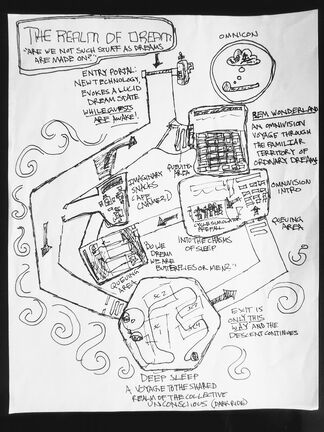 THE REALM OF DREAM
"ARE WE NOT SUCH STUFF AS DREAMS
ARE MADE ON?"
OMNICON
ENTRY PORTAL:
NEW TECHNOLOGY
EVOKES A LUCID
DREAM STATE
WHILE GUESTS
ARE AWAKE!
REM WONDERLAND
AN OMNIVISION
VOYAGE THROUGH
THE FAMILIAR
TERRITORY OF
ORDINARY DREAMS
AREA
IMAGINARY
SNACKS
CAFE
OMNIVISION
INTRO
QUEUING
AREA
FREEFALL
INTO THE CHASMS
OF SLEEP
DO WE
DREAM
WE ARE
BUTTERFLIES OR MEN?"
QUEUING
AREA
EXIT IS
ONLY THIS
WAY AND THE
DESCENT CONTINUES
DEEP SLEEP
A VOYAGE TO THE SHARED
REALM OF THE COLLECTIVE
UNCONSCIOUS (DARK RIDE)